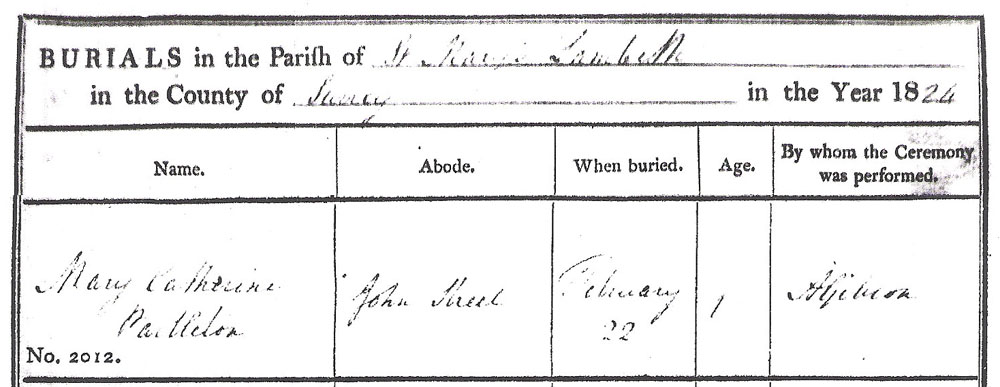 BURIALS in the Pariſh of St Mary's Lambeth
in the County of Surrey in the Year 1824
Name. Abode. When buried. Age. By whom the Ceremony was performed.
Mary Catherine John Street February 1 AGibson
Partleton 22
No. 2012.